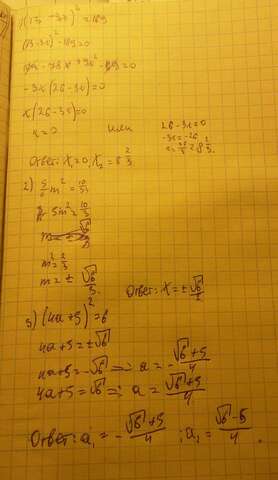 (13-3x)²=169
(13-3x)²-169=0
169-78x+9x²-169=0
-3x(26-3x)=0
x(26-3x)=0
x=0 или 26-3x=0
-3x=-26
Ответ: x₁=0 x₂=8 2/3
2) m²=10/
5m²=10/3
m²=2/3
m=±√6/3
Ответ: x=±√6/
3) (4a+5)²=6
4a+5=±√6
4a+5=-√6 => a=-√6+5/4
4a+5=√6 => a=√6+5/4
Ответ: a₁=-√6+5/4 ; a₁=√6-5/4.